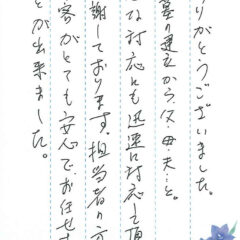 りがとうございました。
墓の建立から、父母、夫…と。
な対応にも迅速に対応して頂
謝しております。担当者の方
客がとても安心で、お任せす
とが出来ました。